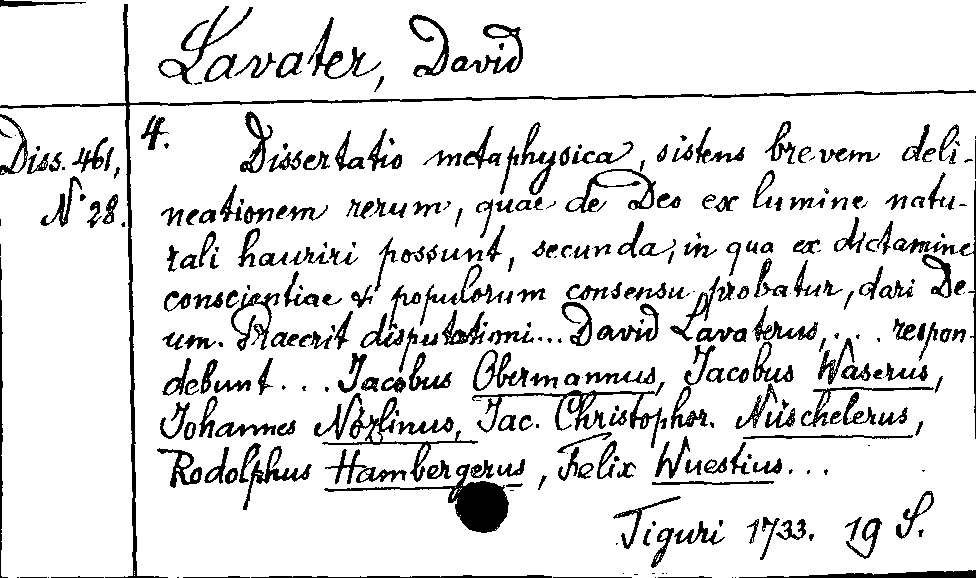 Lavater, David
Diss. 461,
N° 28.
4. Dissertatio metaphysica, sistens brevem deli-
neationem rerum, quae de Deo ex lumine natu-
rali hauriri possunt, secunda, in qua ex dictamine
conscientiae & populorum consensu probatur, dari De-
um. Praeerit disputationi... David Lavaterus, ... respon-
debunt ... Jacobus Obermannus, Jacobus Waserus,
Johannes Nözlinus, Jac. Christophor. Nüschelerus,
Rodolphus Hambergerus, Felix Wuestius...
Tiguri 1733. 19 S.